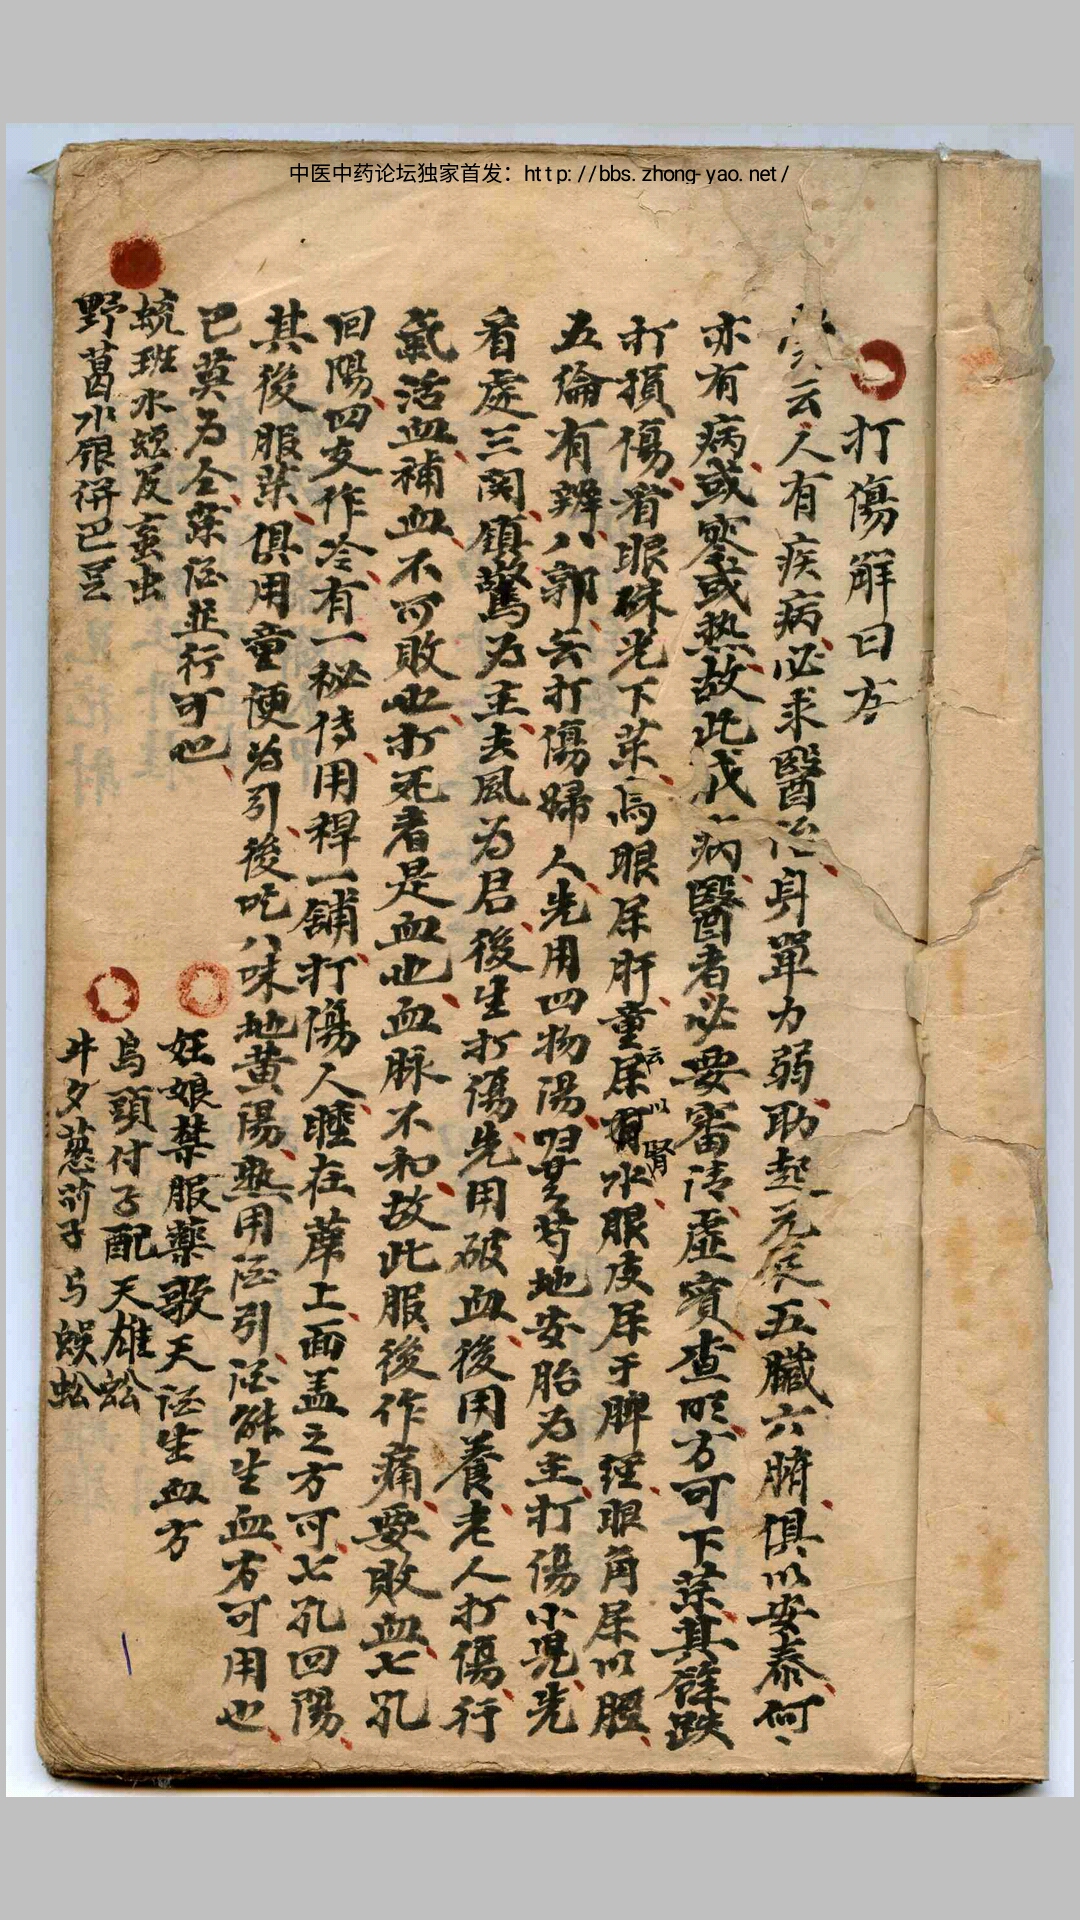 中医中药论坛独家首发：http://bbs.zhong-yao.net/
打傷觧曰方
云人有疾病必求醫治身單力弱助起元氣五臟六腑俱以安泰何
亦有病或寒或热故此成病醫者必要審清虛實查明方可下药其跌
打損傷看眼硃光下药烏眼屎肝童屎云以腎水眼皮屎于脾經眼角屎以腽
五倫有辨八郭云打傷婦人先用四物湯归芎地安胎为主打傷小児先
看處三関鎮驚为主去風为君後生打傷先用破血後用養老人打傷行
氣活血補血不可敗也打死者是血也血脉不和故此服後作痛要敗血七孔
回陽四支作冷有一秘傳用稈一舖打傷人睡在蓆上面盖之方可七孔回陽
其後服药俱用童便为引後吃八味地黄湯熱用酒引酒能生血方可用也
已莫为仝药酒並行可也
妊娘禁服藥歌天酒生血方
蚖班水蛭及䖟虫
烏頭付子配天雄
野葛水銀併巴豆
牛夕薏苡子与蜈蚣